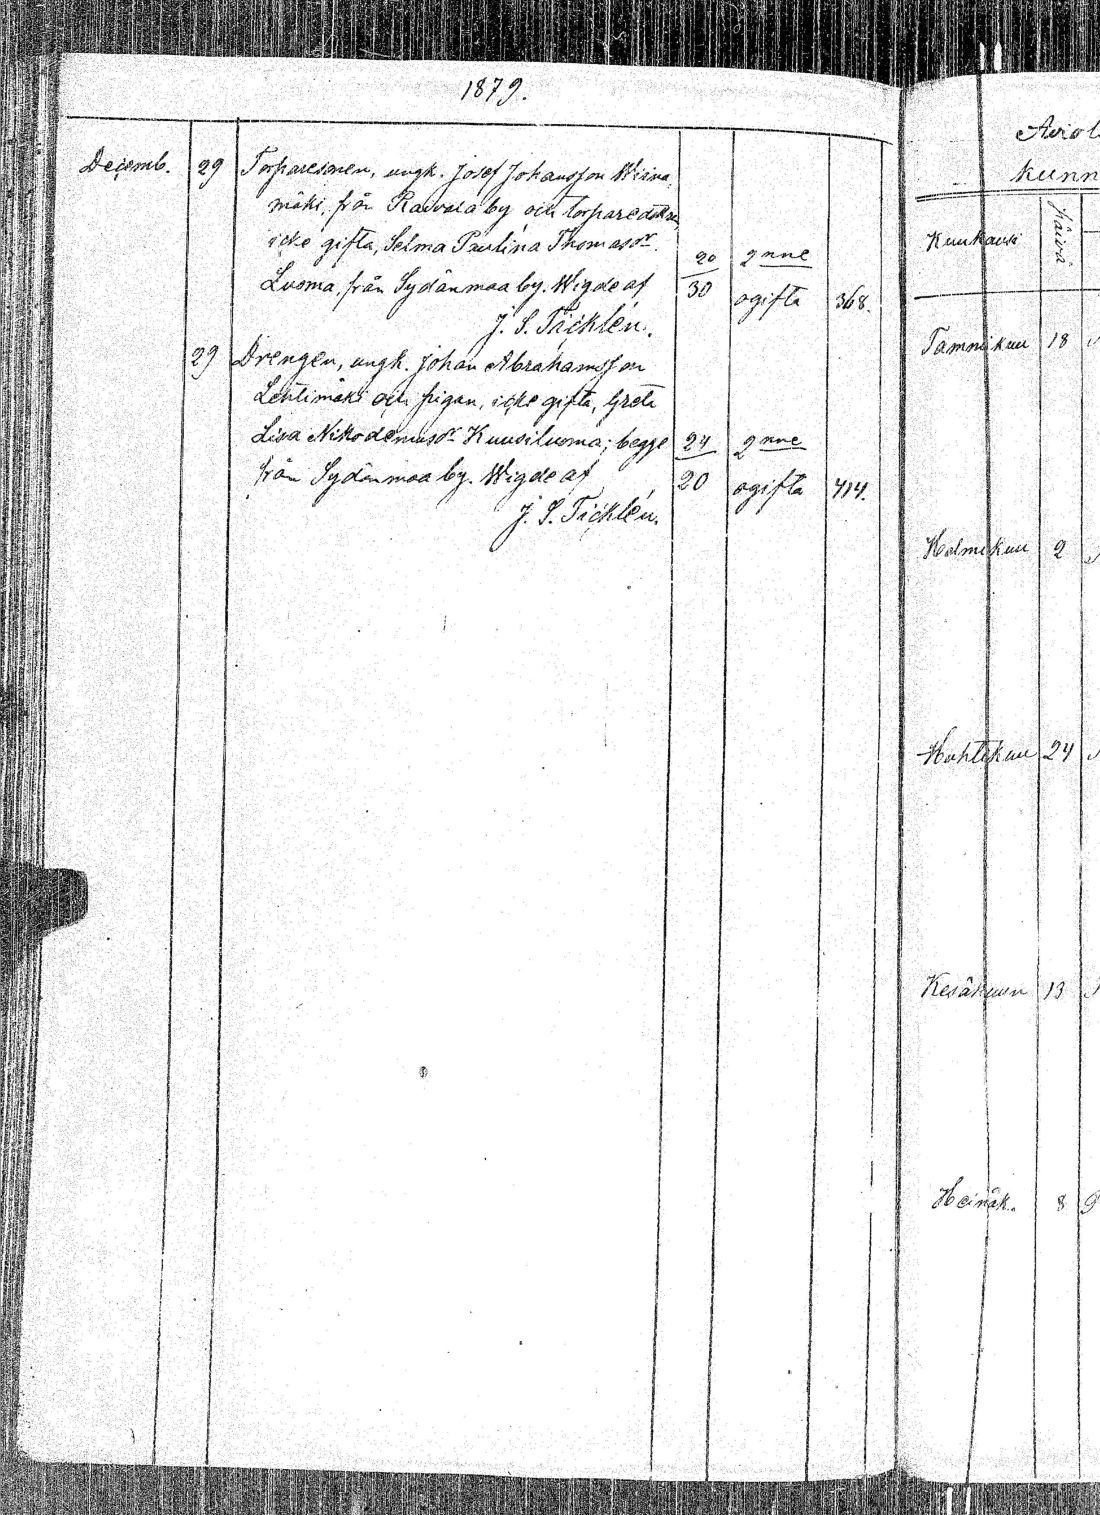 1879.
Decemb. 29 Torparesonen, ungk. Josef Johansson Wiina
mäki, från Rawala by och torparedottren,
icke gifta, Selma Paulina Thomasdr 20 2nne
Luoma, från Sydänmaa by. Wigde af 30 ogifta 368.
J. S. Täcklén.
29 Drengen, ungk. Johan Abrahamsson
Lehtimäki och pigan, icke gifta, Greta
Lisa Nikodemusdr Kuusiluoma; begge 24 2nne
från Sydänmaa by. Wigde af 20 ogifta 414.
J. S. Täcklén.
Aviol
kunn
Kuukausi Päivä
Tammikuu 18
Helmikuu 2
Huhtikuu 24
Kesäkuun 13
Heinäk. 8